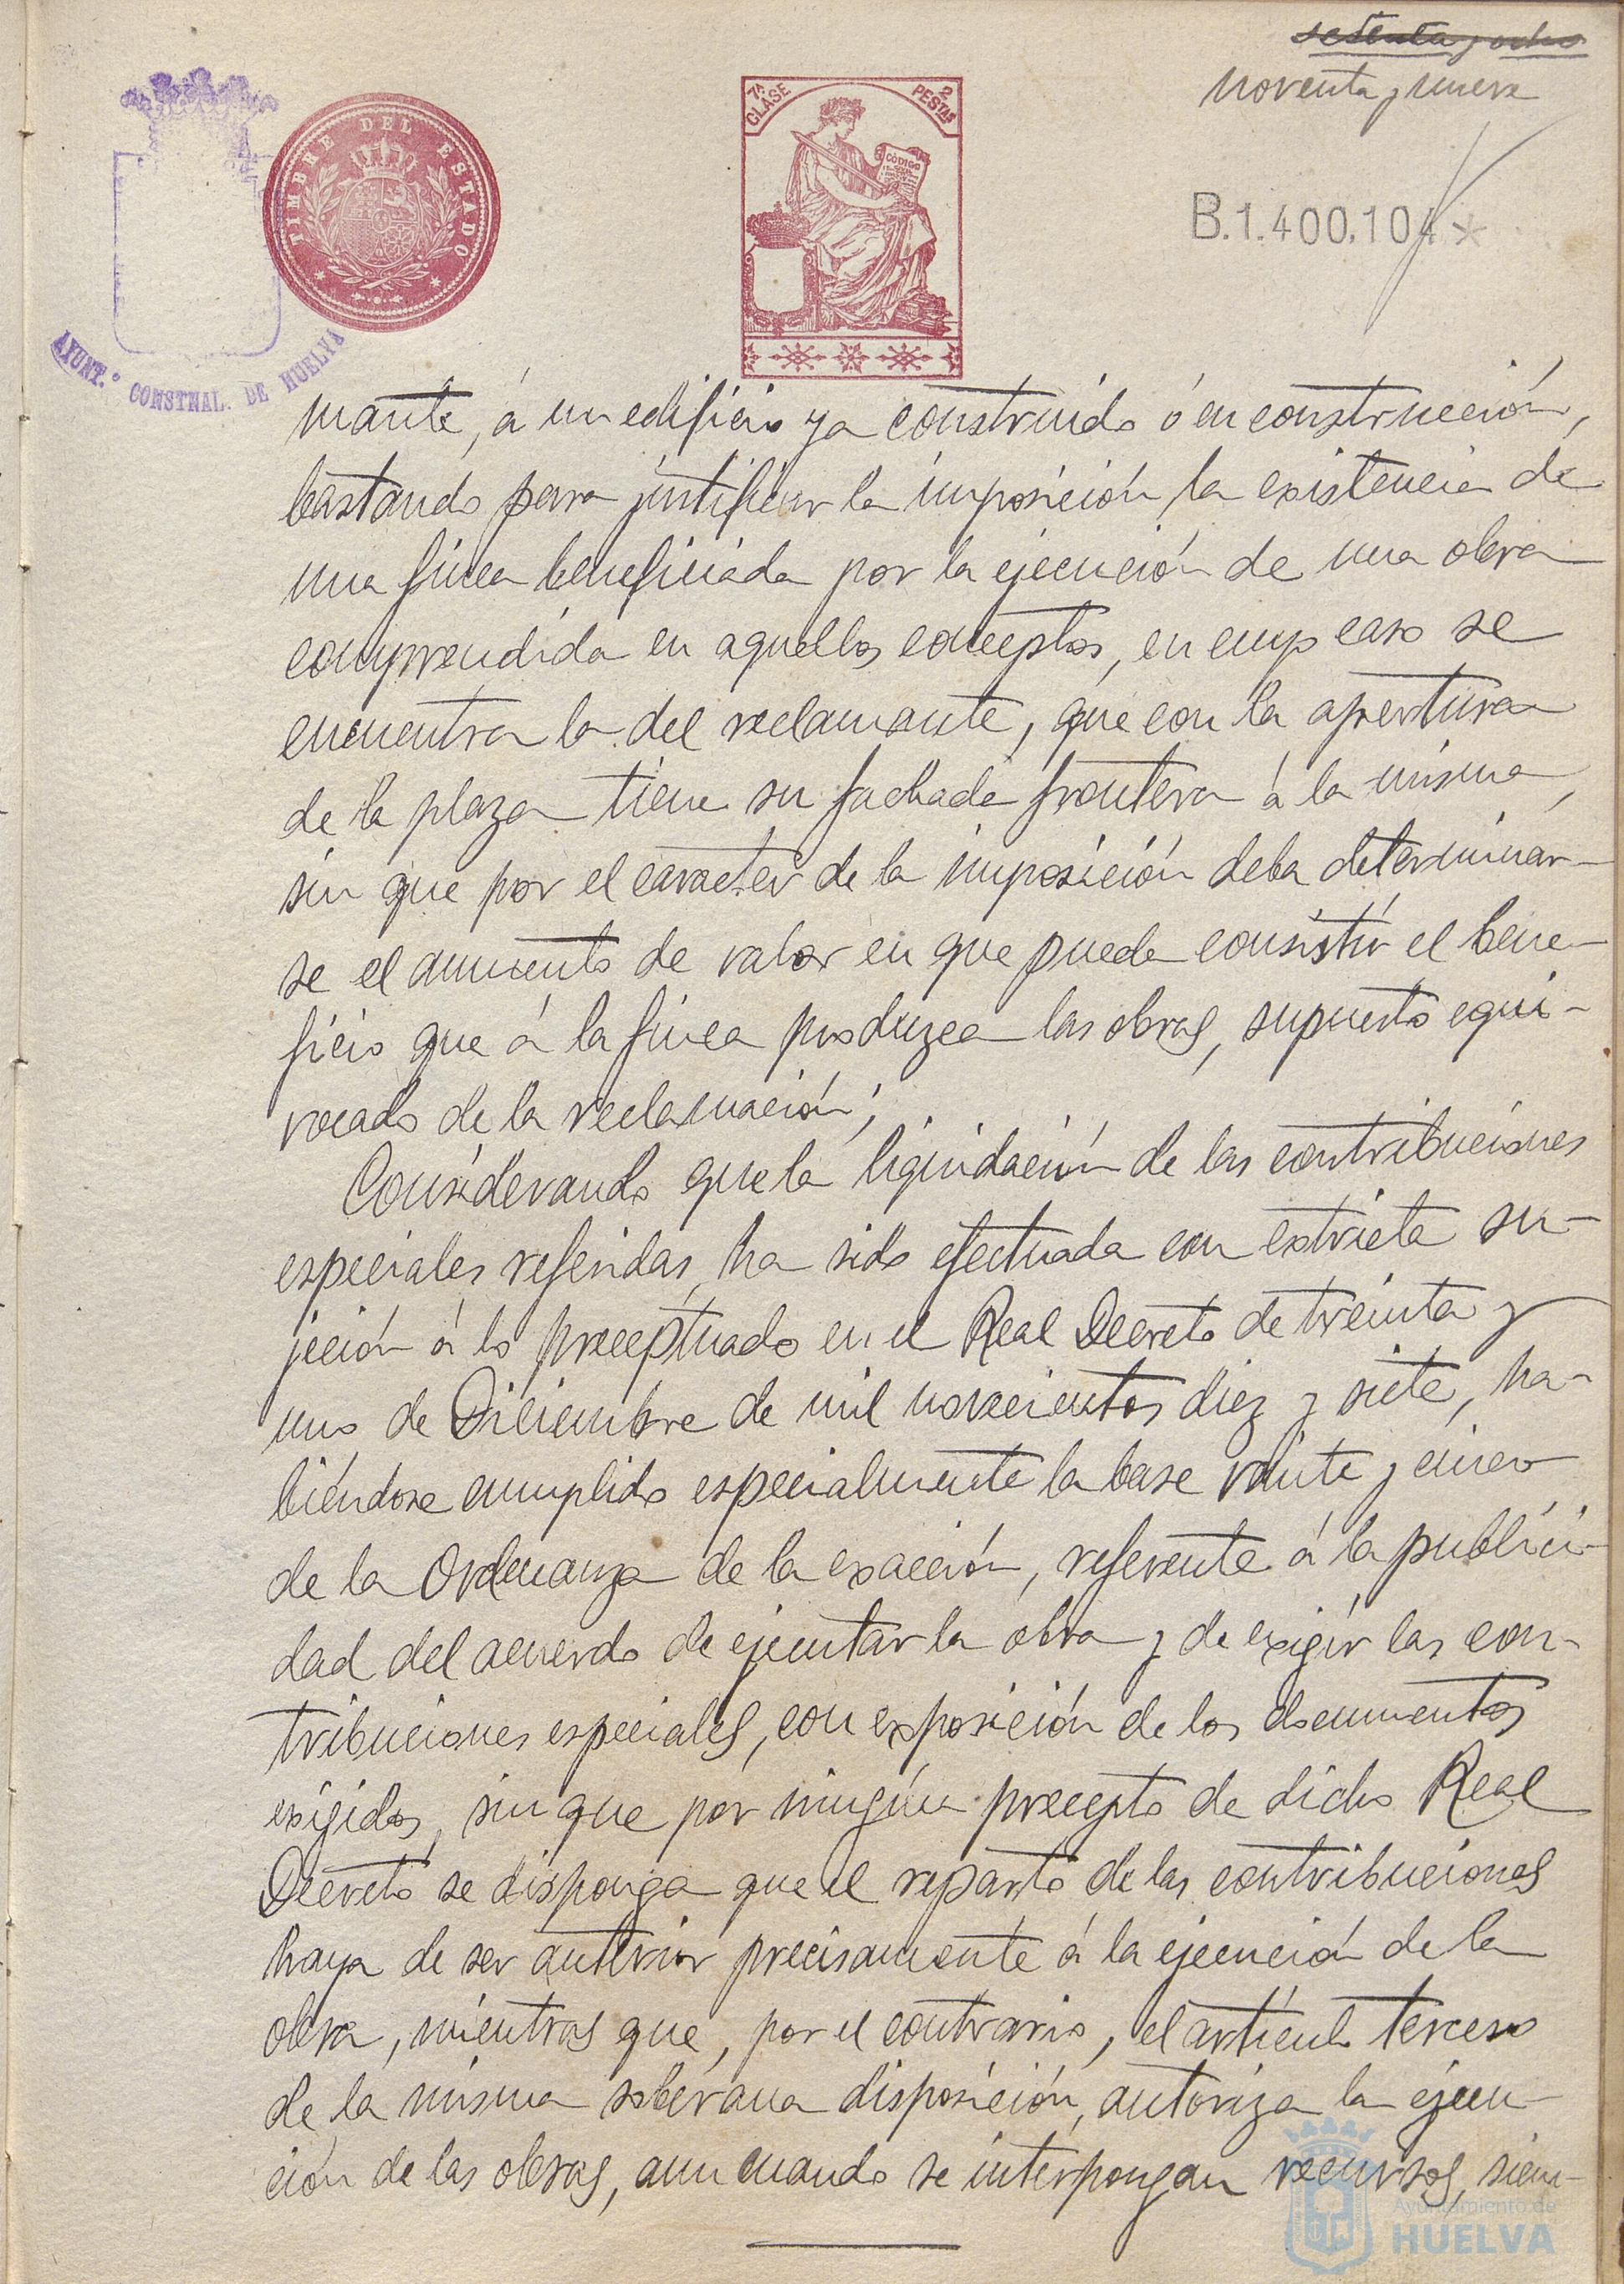 setenta y ocho
noventa y nueve
7ª CLASE
2 PESTAS
CÓDIGO
TIMBRE DEL ESTADO
B.1.400.104*
AYUNT.º CONSTNAL. DE HUELVA
mante, á un edificio ya construido ó en construcción,
bastando para justificar la imposición, la existencia de
una finca beneficiada por la ejecución de una obra
comprendida en aquellos conceptos, en cuyo caso se
encuentra la del reclamante, que con la apertura
de la plaza tiene su fachada frontera á la misma,
sin que por el caracter de la imposición deba determinar-
se el aumento de valor en que puede consistir el bene-
ficio que á la finca produzca las obras, supuesto equi-
vocado de la reclamación;
Considerando que la liquidación de las contribuciones
especiales referidas, ha sido efectuada con extricta su-
jeción á lo preceptuado en el Real Decreto de treinta y
uno de Diciembre de mil novecientos diez y siete, ha-
biéndose cumplido especialmente la base veinte y cinco
de la Ordenanza de la exacción, referente á la publici-
dad del acuerdo de ejecutar la obra y de exigir las con-
tribuciones especiales, con exposición de los documentos
exigidos, sin que por ningún precepto de dicho Real
Decreto se disponga que el reparto de las contribuciones
haya de ser anterior precisamente á la ejecución de la
obra, mientras que, por el contrario, el artículo tercero
de la misma soberana disposición, autoriza la ejecu-
ción de las obras, aun cuando se interpongan recursos, siem-
Ayuntamiento de
HUELVA